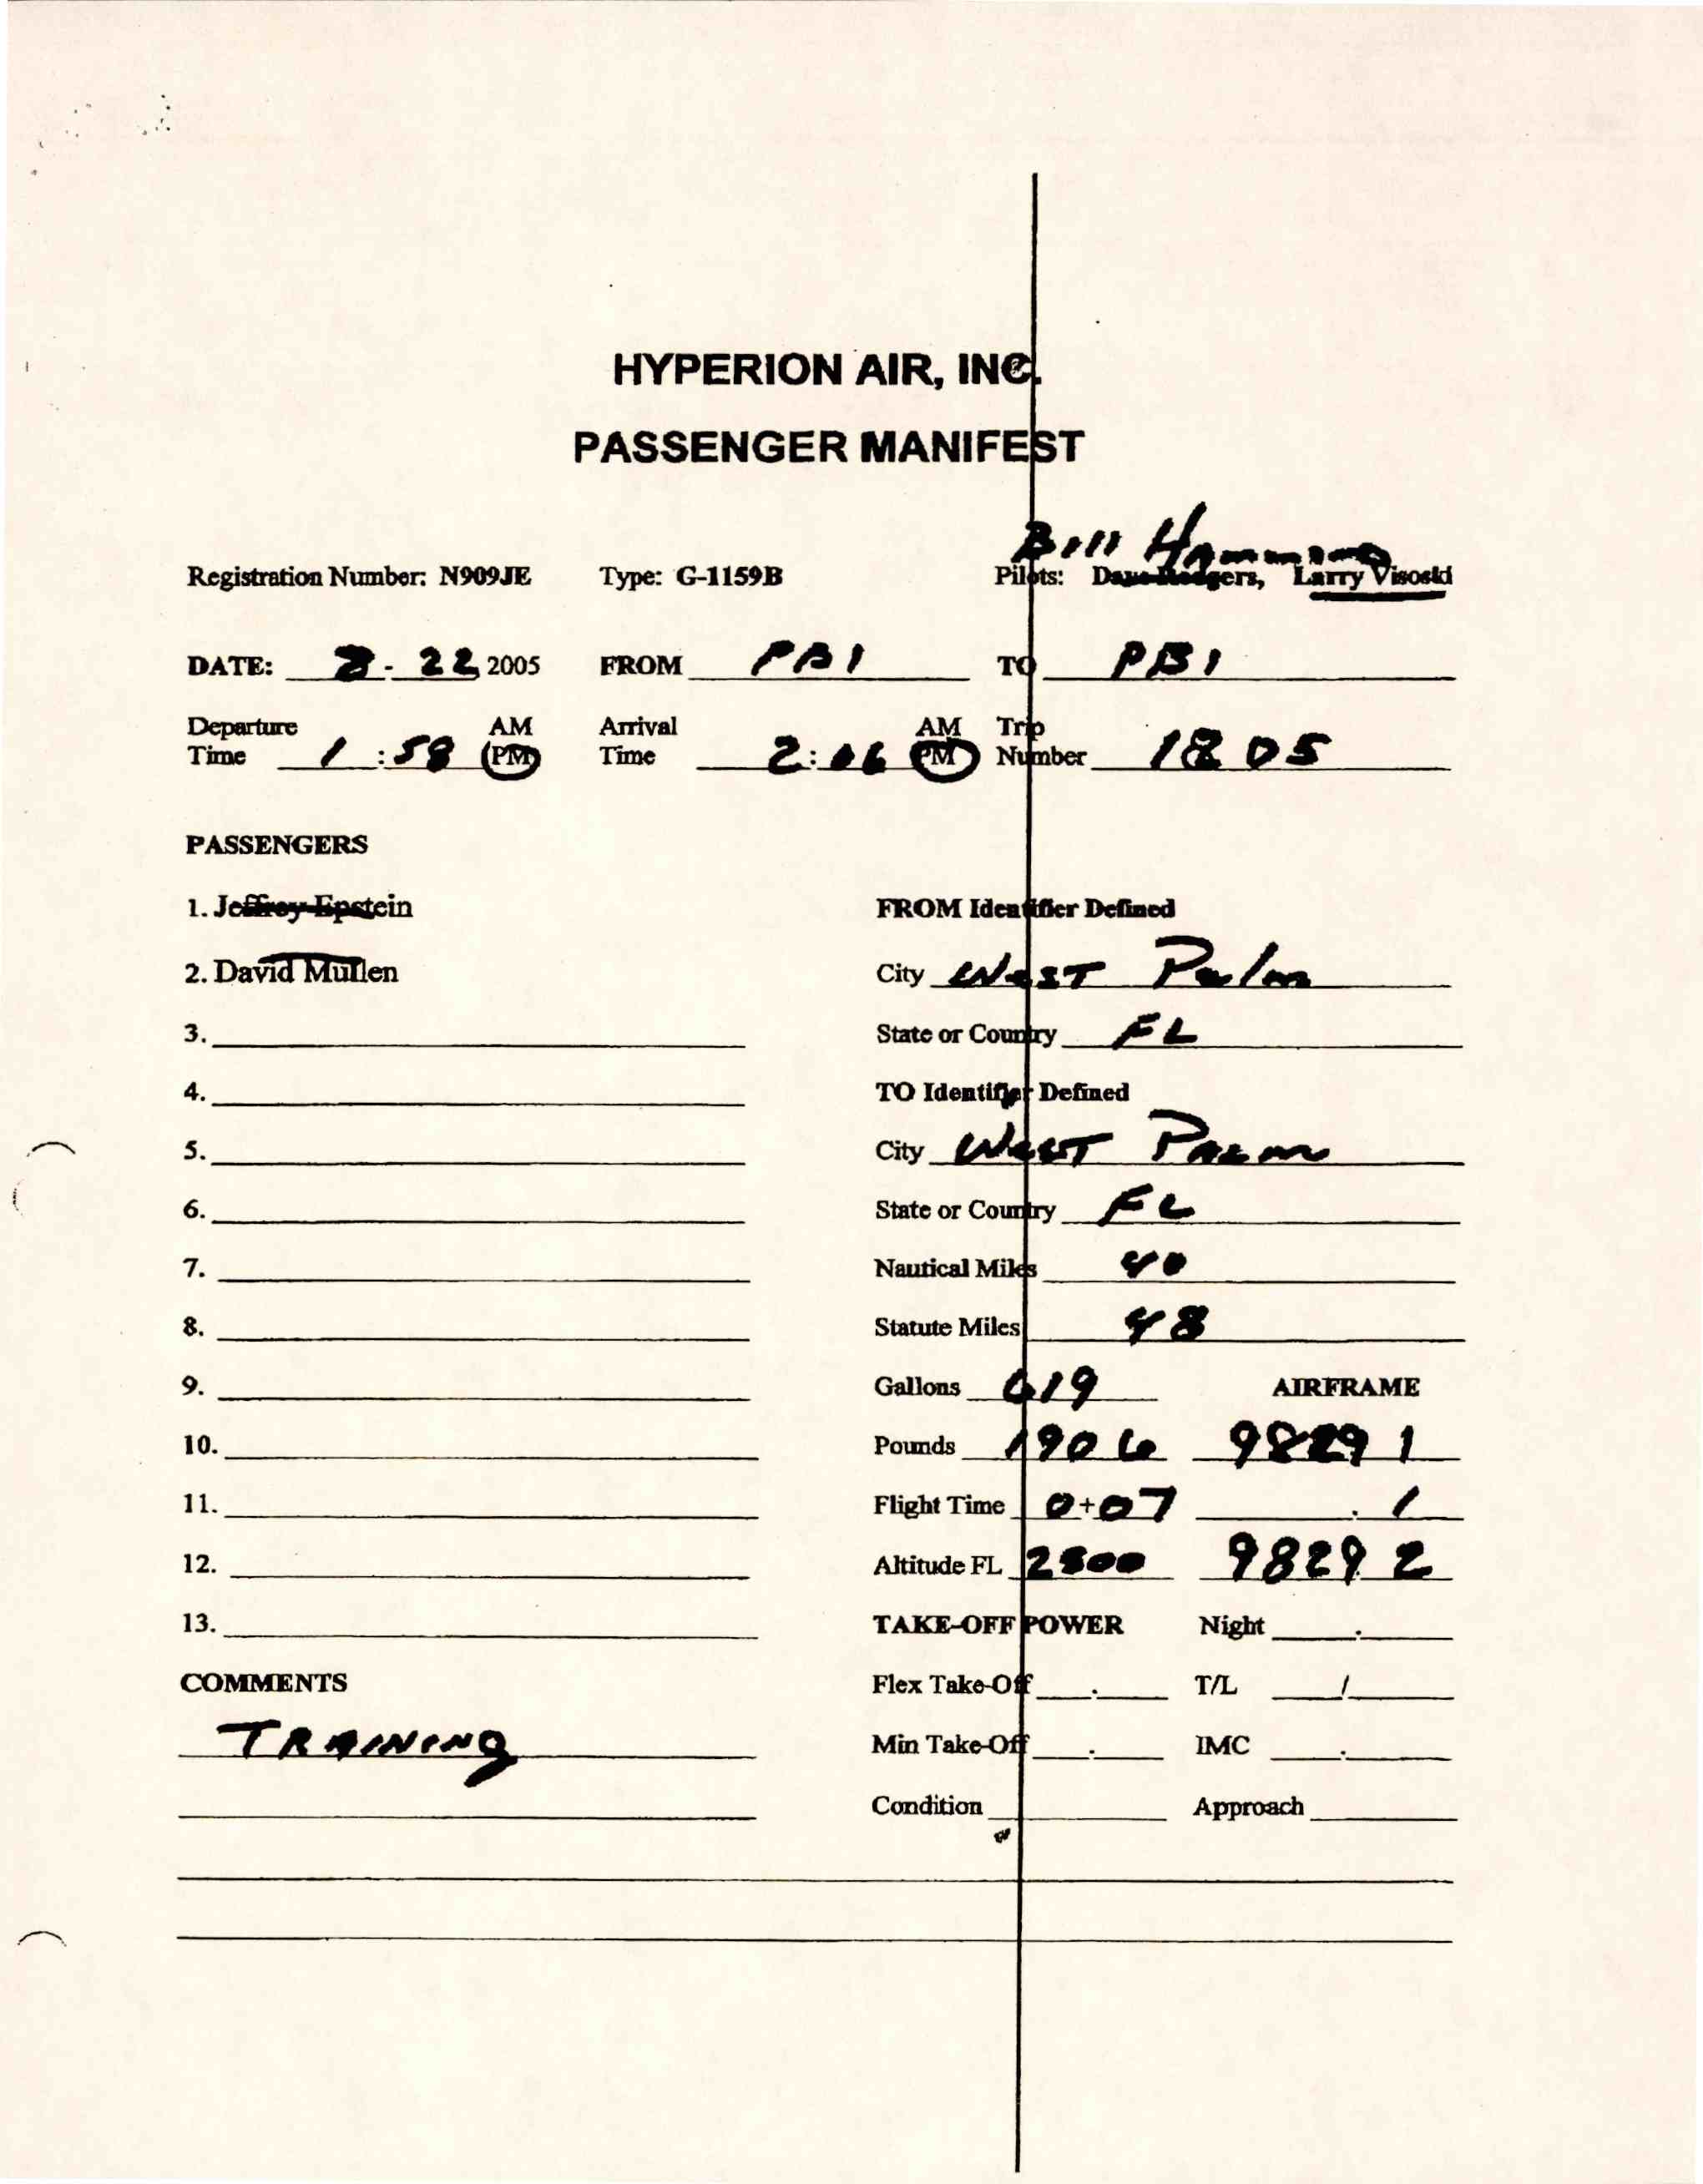 HYPERION AIR, INC.
PASSENGER MANIFEST
Bill Hammond
Registration Number: N909JE Type: G-1159B Pilots: Dave Rodgers, Larry Visoski
DATE: 8-22 2005 FROM PBI TO PBI
Departure AM Arrival AM Trip
Time 1:58 PM Time 2:06 PM Number 1805
PASSENGERS
1. Jeffrey Epstein FROM Identifier Defined
2. David Mullen City West Palm
3. State or Country FL
4. TO Identifier Defined
5. City West Palm
6. State or Country FL
7. Nautical Miles 40
8. Statute Miles 48
9. Gallons 619 AIRFRAME
10. Pounds 1906 9829 1
11. Flight Time 0+07 . 1
12. Altitude FL 2500 9829 2
13. TAKE-OFF POWER Night .
COMMENTS Flex Take-Off . T/L /
TRAINING Min Take-Off . IMC .
Condition Approach